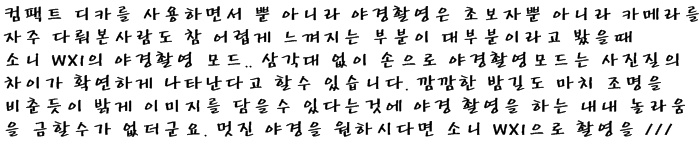 컴팩트 디카를 사용하면서 뿐 아니라 야경촬영은 초보자뿐 아니라 카메라를
자주 다뤄본사람도 참 어렵게 느껴지는 부분이 대부분이라고 봤을때
소니 WX1의 야경촬영 모드.. 삼각대 없이 손으로 야경촬영모드는 사진질의
차이가 확연하게 나타난다고 할수 있습니다. 깜깜한 밤길도 마치 조명을
비춘듯이 밝게 이미지를 담을수 있다는것에 야경 촬영을 하는 내내 놀라움
을 금할수가 없더군요. 멋진 야경을 원하시다면 소니 WX1으로 촬영을 ///